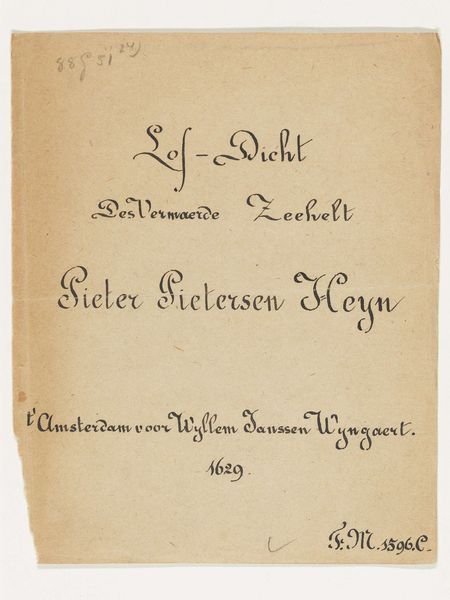 88 G 51 24)
Lof - Dicht
Des Vermaerde Zeehelt
Pieter Pietersen Heyn
t' Amsterdam voor Wyllem Janssen Wyngaert.
1629.
F. M. 1596. C.